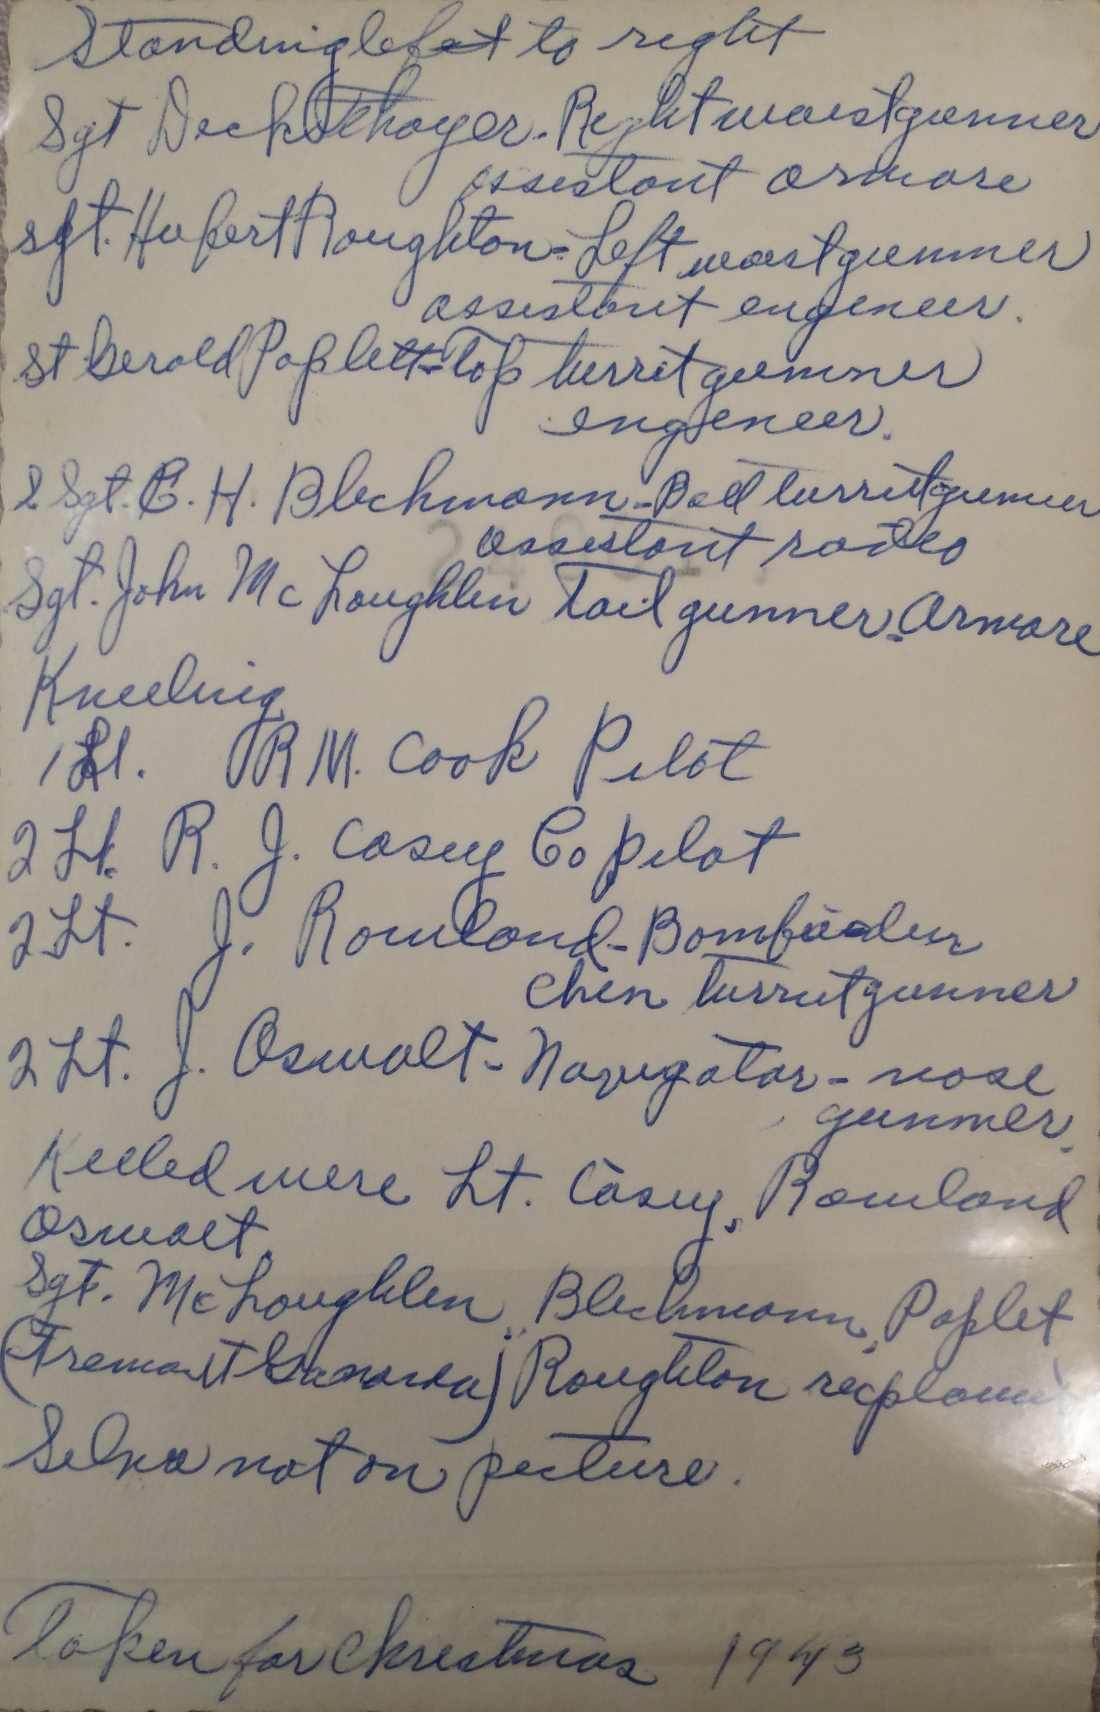 Standing left to right
Sgt Dick Thayer - Right waist gunner
assistant armore
sgt. Hubert Roughton - Left waist gunner
assistant engeneer.
St Gerald Poplett - Top turrit gunner
engeneer.
S Sgt. E. H. Blechmann - Ball turrit gunner
assistant radio
Sgt. John McLoughlin Tail gunner - Armore
Kneeling
1 Lt. R M. Cook Pilot
2 Lt. R. J. Casey Co pilot
2 Lt. J. Rowland - Bombadeer
Chin turrit gunner
2 Lt. J. Oswalt - Navigator - nose
gunner.
Killed were Lt. Casey, Rowland
Oswalt.
Sgt. McLoughlin, Blechmann, Poplet
Roughton
Selva not on picture.
Taken for Christmas 1943